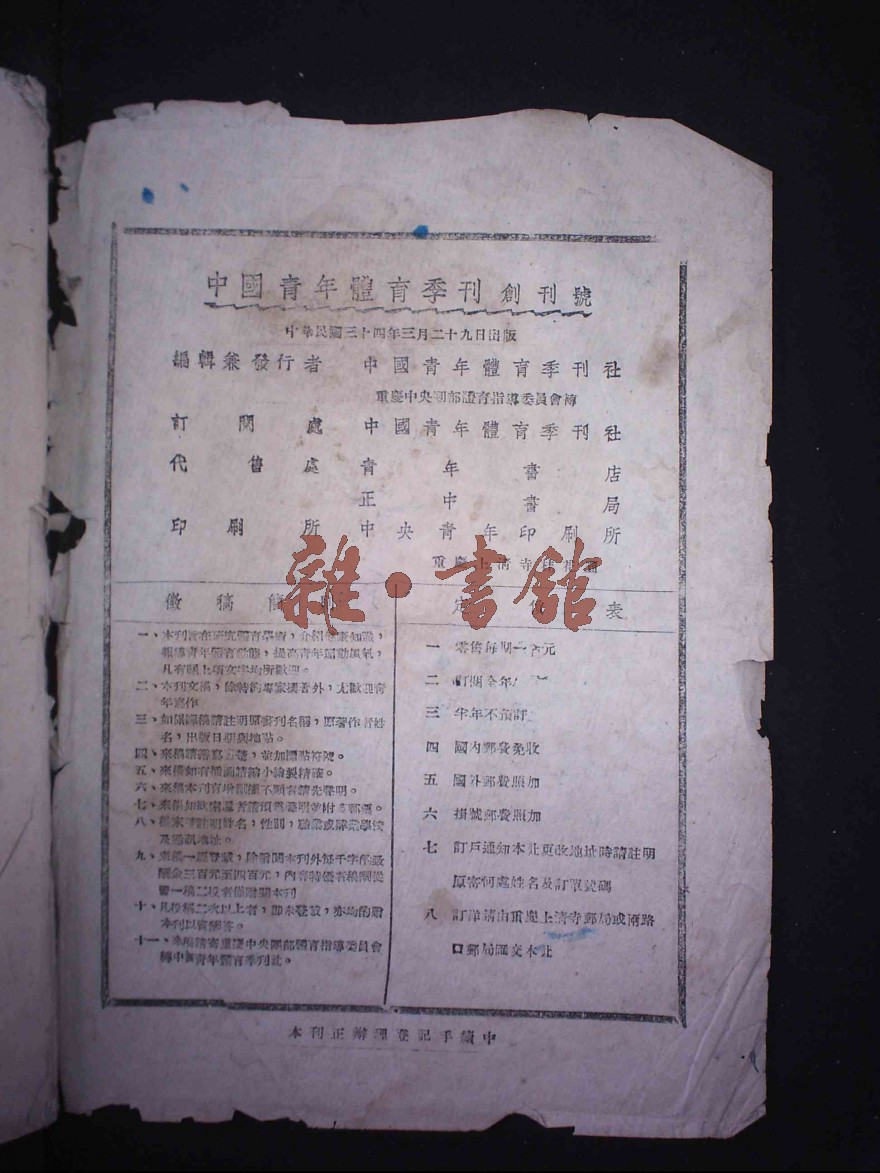 中國青年體育季刊 創刊號
中華民國三十四年三月二十九日出版
編輯兼發行者 中國青年體育季刊社
重慶中央團部體育指導委員會轉
訂閱處 中國青年體育季刊社
代售處 青年書店
正中書局
印刷所 中央青年印刷所
重慶上清寺
雜·書館
徵稿簡
一、本刊旨在研究體育學術，介紹健康知識，
報導青年體育動態，提高青年運動風氣，
凡有關上項文字均所歡迎。
二、本刊文稿，除特約專家撰著外，尤歡迎青
年寫作
三、如係譯稿請註明原書刊名稱，原著作者姓
名，出版日期與地點。
四、來稿請繕寫清楚，並加標點符號。
五、來稿如有插圖請縮小繪製精確。
六、來稿本刊有增刪權不願者請先聲明。
七、來稿如欲退還者請預為聲明並附足郵票。
八、稿末請註明姓名，性別，職業或肄業學校
及通訊地址。
九、來稿一經登載，除贈閱本刊外每千字酌致
酬金三百元至四百元，內容特優者稿酬從
豐一稿二投者僅贈閱本刊
十、凡投稿二次以上者，即未登載，亦均酌贈
本刊以資酬答。
十一、來稿請寄重慶中央團部體育指導委員會
轉中國青年體育季刊社。
定 表
一 零售每期一百元
二 訂閱全年
三 半年不預訂
四 國內郵費免收
五 國外郵費照加
六 掛號郵費照加
七 訂戶通知本社更改地址時請註明
原寄何處姓名及訂單號碼
八 訂單請由重慶上清寺郵局或兩路
口郵局匯交本社
本刊正辦理登記手續中